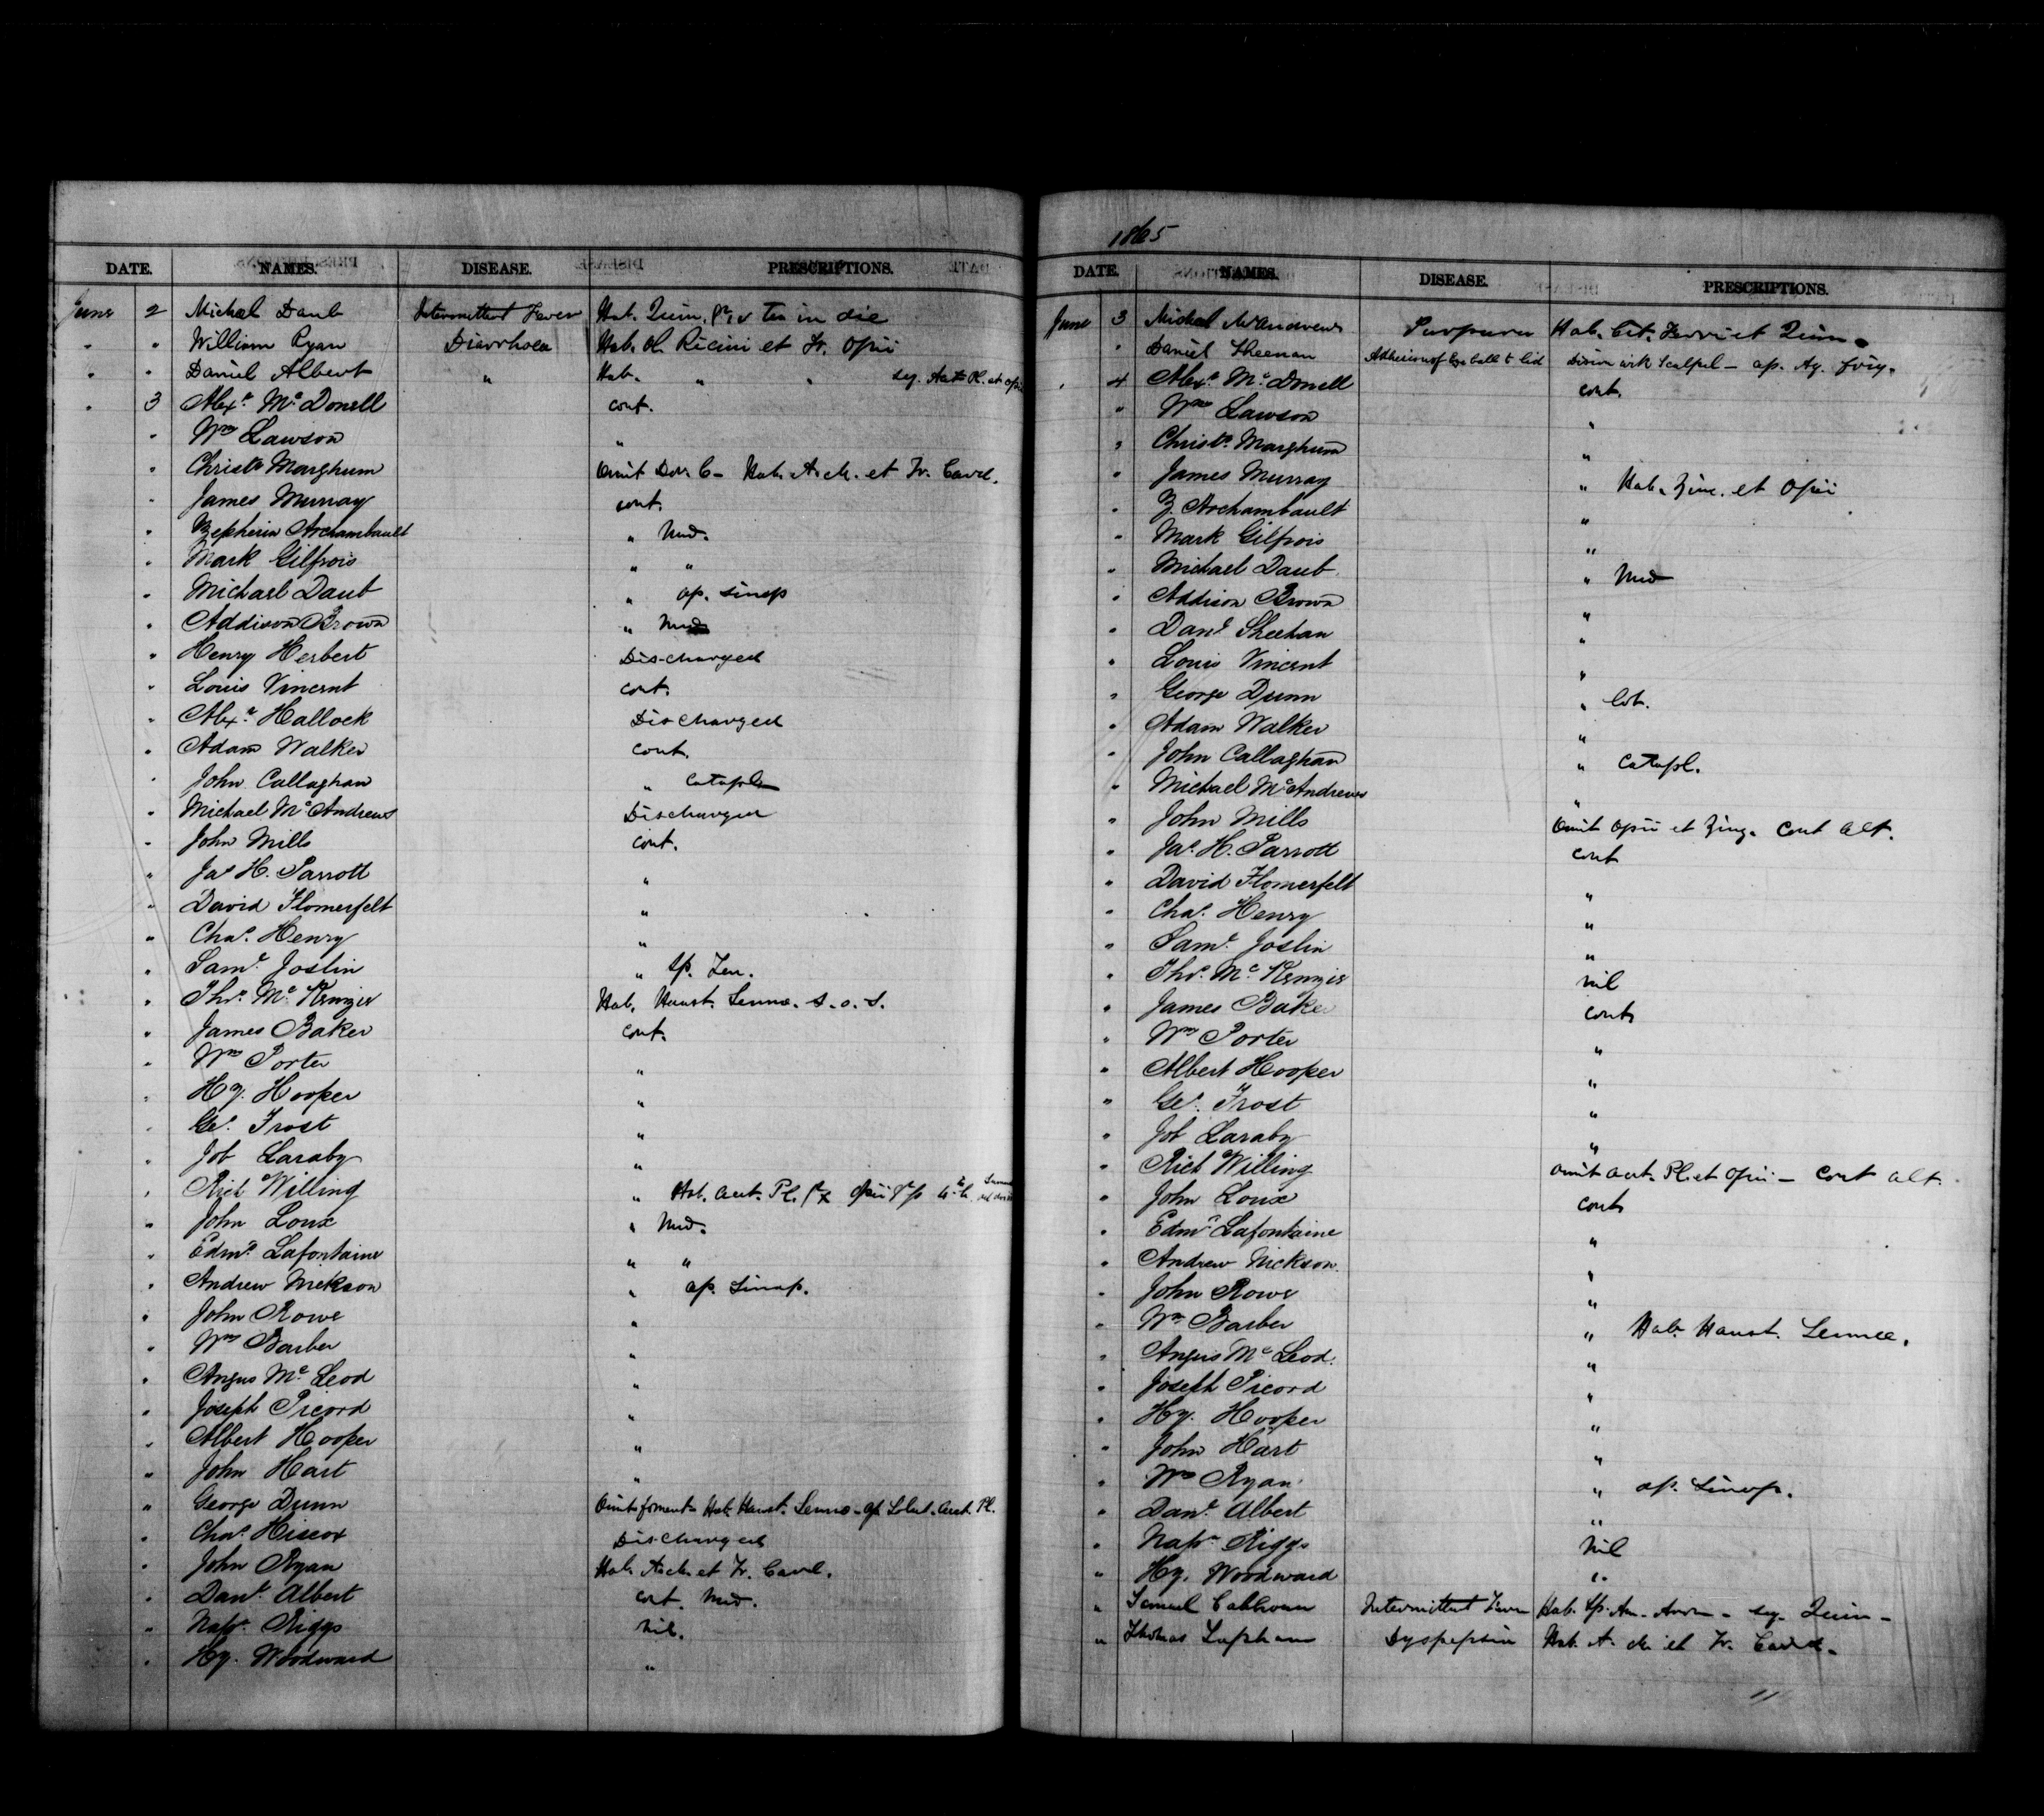 DATE. NAMES. DISEASE. PRESCRIPTIONS.
June 2 Michael Daub Intermittent Fever Hab. Quin. gr. v ter in die
" " William Ryan Diarrhoea Hab. Ol. Ricini et Tr. Opii
" " Daniel Albert " Hab. " " sq. Opii
" 3 Alexr. McDonell cont.
" Wm Lawson "
" Christr Marghum Omit Dov. C - Hab. A. ch. et Tr. Card.
" James Murray cont.
" Zepherin Archambault " Med.
" Mark Gilfrois " "
" Michael Daub " ap. sinap
" Addison Brown " Med
" Henry Herbert Discharged
" Louis Vincent cont.
" Alexr Hallock Discharged
" Adam Walker cont.
" John Callaghan " Catapl
" Michael McAndrews Discharged
" John Mills cont.
" Jas H. Parrott "
" David Flomerfelt "
" Chas. Henry "
" Saml. Joslin " Sp.
" Thos. McKenzie Hab. Haust. Senna. s.o.s.
" James Baker cont.
" Wm Porter "
" Hy. Hooper "
" Geo. Frost "
" Job Laraby "
" Rich Willing " Hab. Acet. Pl. Opii
" John Loux " Med.
" Edmd. Lafontaine " "
" Andrew Nickson " ap. Sinap.
" John Rowe "
" Wm Barber "
" Angus McLeod "
" Joseph Picord "
" Albert Hooper "
" John Hart "
" George Dunn Omit foment - Hab. Haust. Senna - ap. Solut. Acet. Pl.
" Chas. Hiscox Discharged
" John Ryan Hab. A. ch. et Tr. Card.
" Danl. Albert cont. Med.
" Napn. Riggs nil.
" Hy. Woodward "
1865
DATE. NAMES. DISEASE. PRESCRIPTIONS.
June 3 Michael McAndrews Purpura Hab. Cit. Ferri et Quin.
" Daniel Sheenan Adhesion of Eye ball to lid Divin with Scalpel - ap. Aq. frig.
" 4 Alexr. McDonell cont.
" Wm Lawson "
" Christr. Marghum "
" James Murray " Hab. Zinc. et Opii
" Z. Archambault "
" Mark Gilfrois "
" Michael Daub " Med
" Addison Brown "
" Danl. Sheehan "
" Louis Vincent "
" George Dunn " lot.
" Adam Walker "
" John Callaghan " Catapl.
" Michael McAndrews "
" John Mills Omit Opii et Zing. Cont alt.
" Jas. H. Parrott cont
" David Flomerfelt "
" Chas. Henry "
" Saml. Joslin "
" Thos. McKenzie nil
" James Baker cont
" Wm Porter "
" Albert Hooper "
" Geo. Frost "
" Job Laraby "
" Rich Willing Omit Acet. Pl. et Opii - Cont alt.
" John Loux cont
" Edmd. Lafontaine "
" Andrew Nickson. "
" John Rowe "
" Wm Barber " Hab. Haust. Sennae.
" Angus McLeod. "
" Joseph Picord "
" Hy. Hooper "
" John Hart "
" Wm Ryan " ap. Sinap.
" Danl. Albert "
" Napn Riggs nil
" Hy. Woodward "
" Samuel Calhoun Intermittent Fever Hab. Sp. Am. Arom - sq. Quin -
" Thomas Lapham Dyspepsia Hab. A. ch. et Tr. Card.